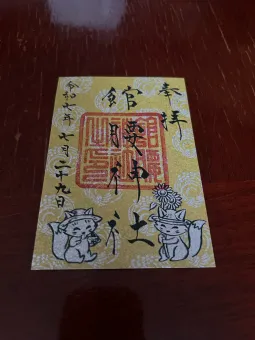 奉拝
館腰神社
令和七年七月二十九日